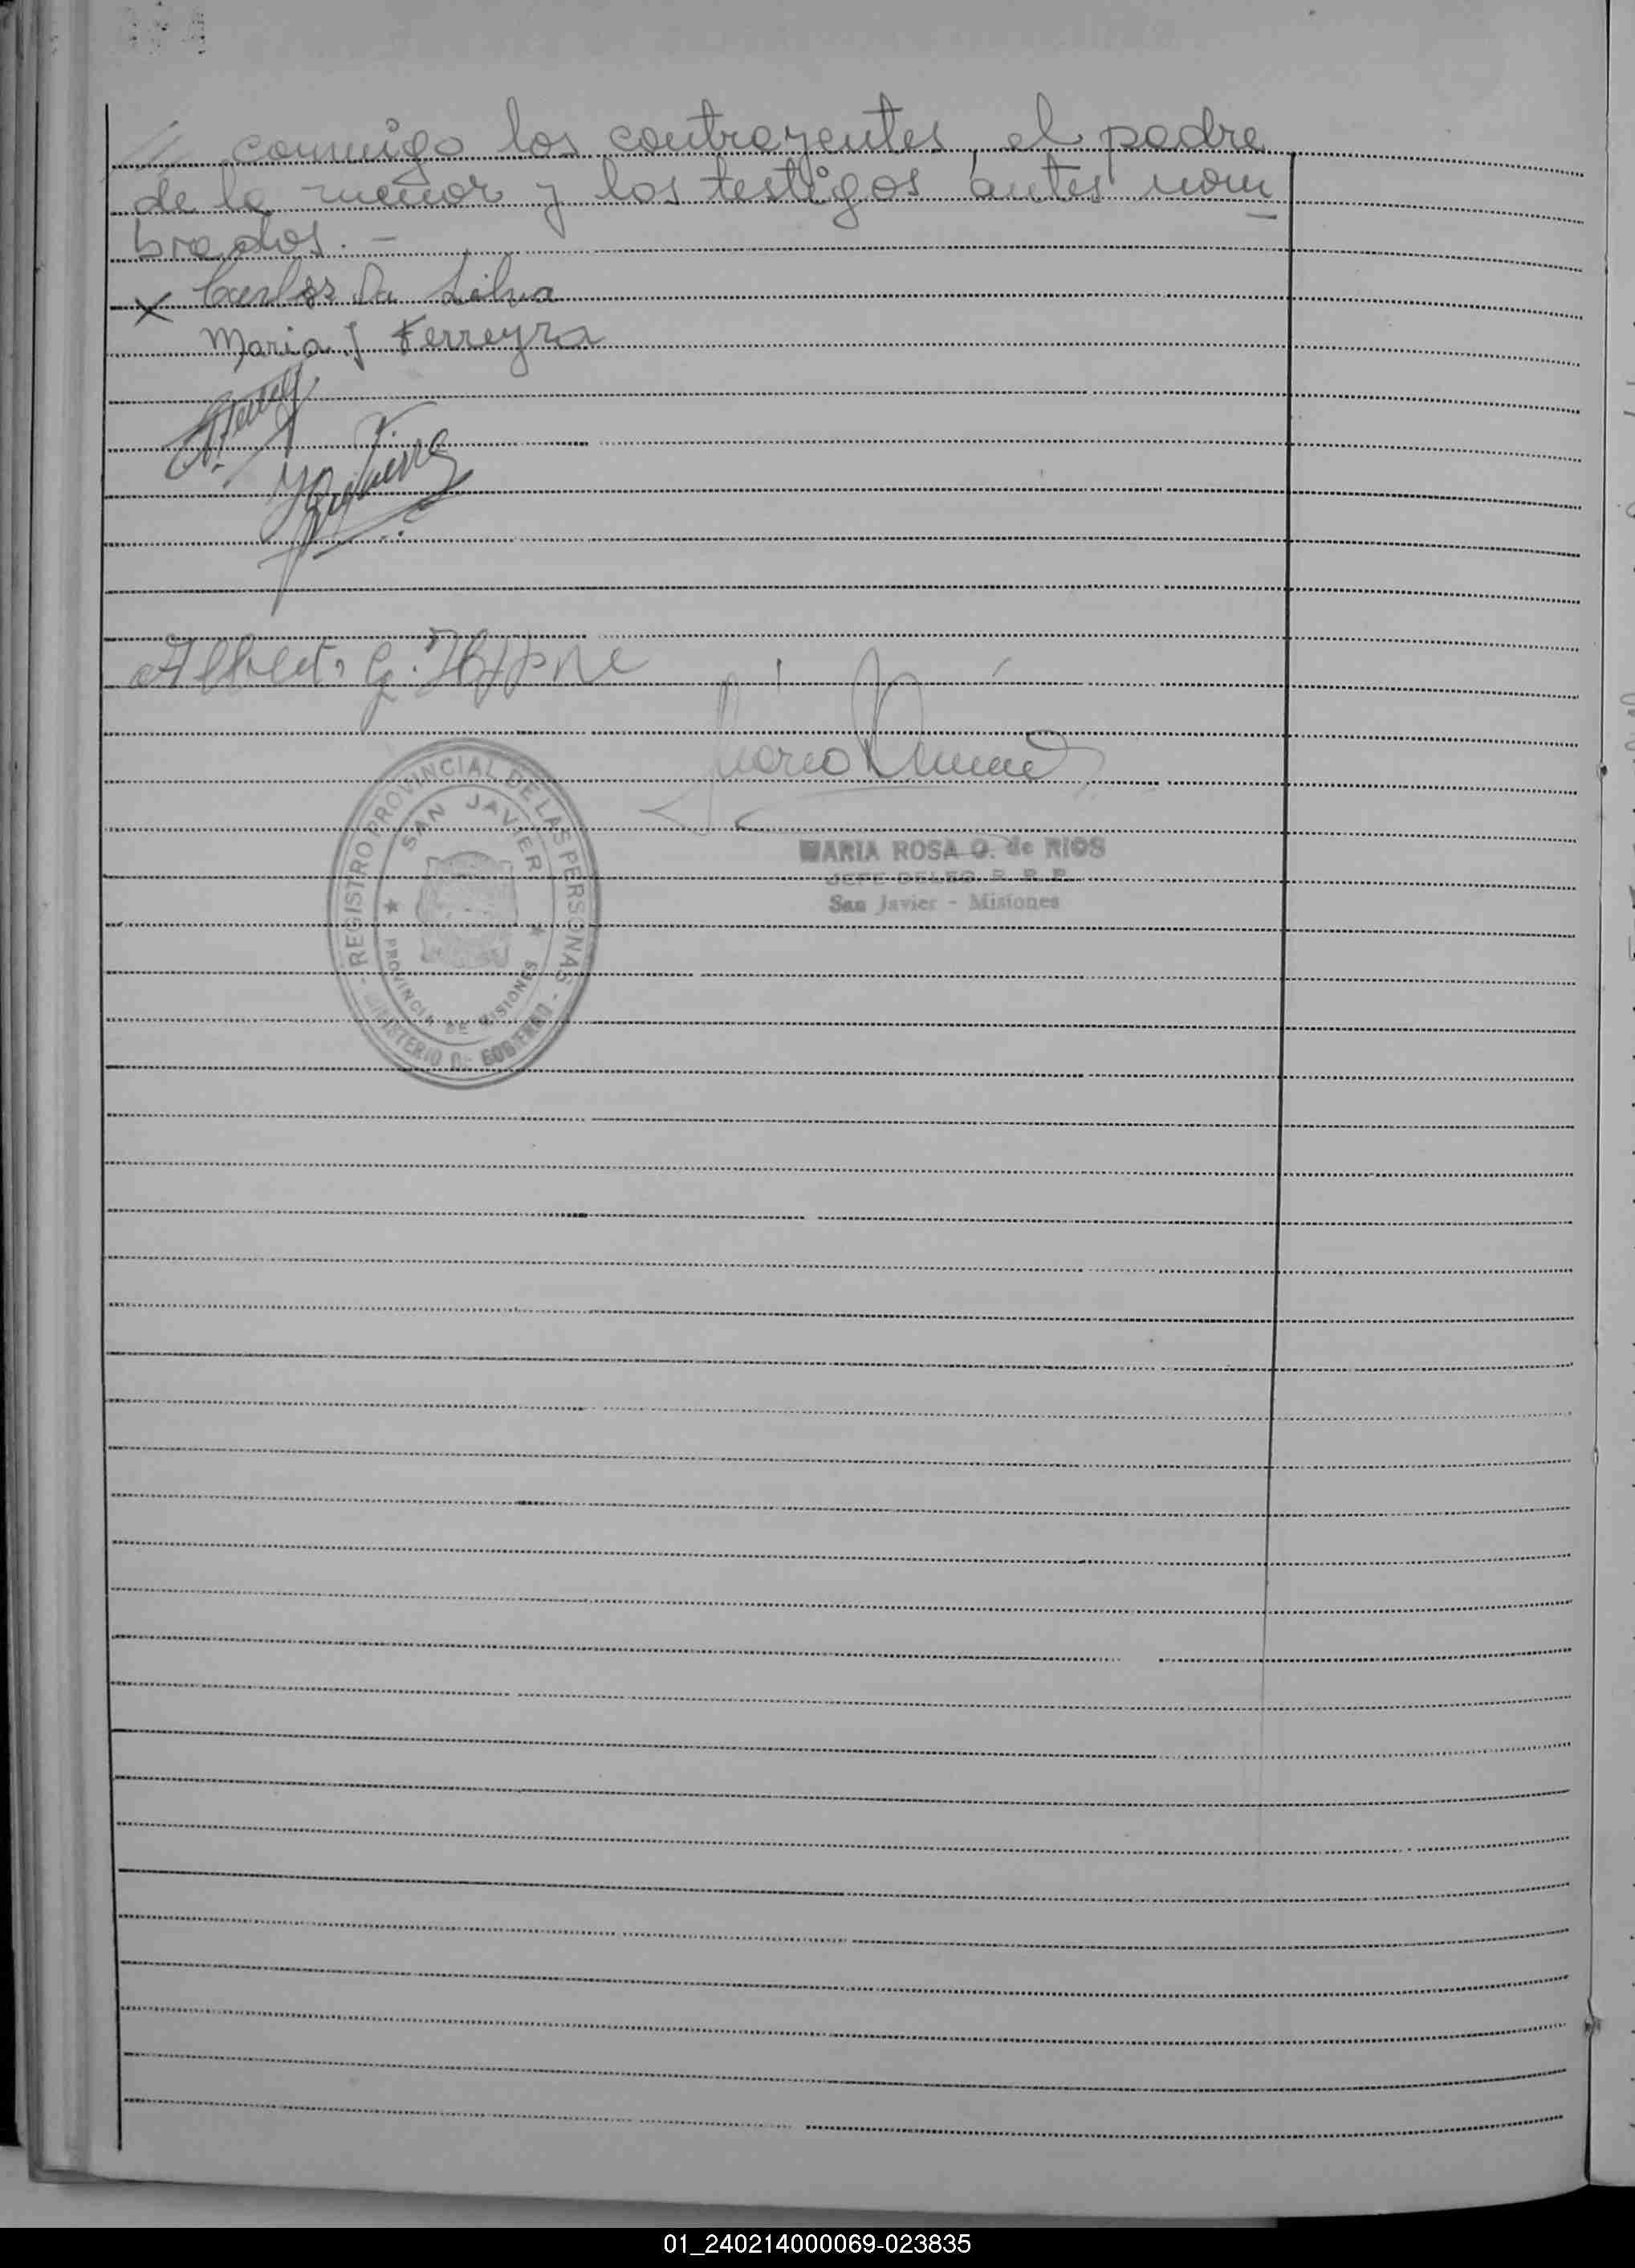 // conmigo los contrayentes, el padre
de la menor y los testigos antes nom
brados. -
x Carlos Da Silva
Maria J Ferreyra
Alberto G.
REGISTRO PROVINCIAL DE LAS PERSONAS
SAN JAVIER
PROVINCIA DE MISIONES
MINISTERIO DE GOBIERNO
MARIA ROSA O. de RIOS
JEFE DELEG. R. P. P.
San Javier - Misiones
01_240214000069-023835